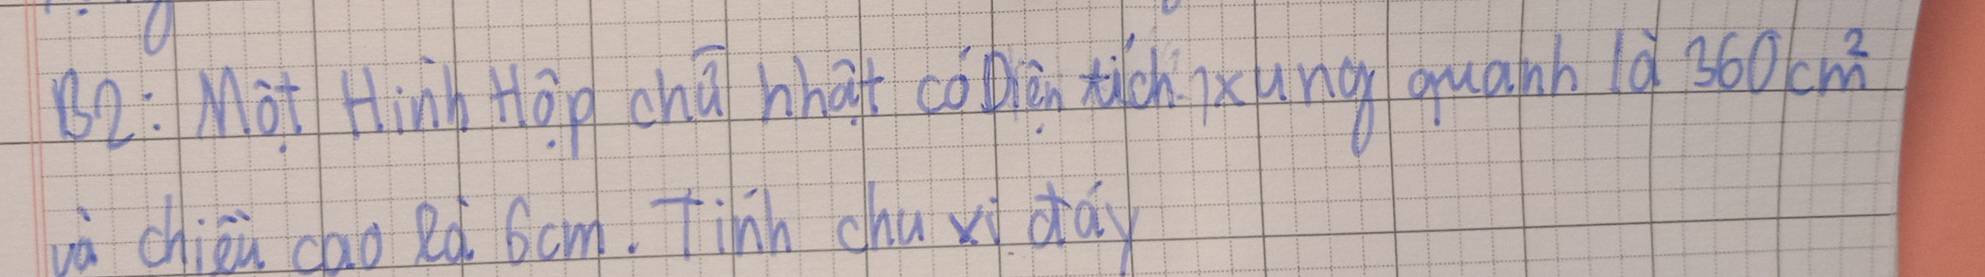 B2: Một Hình Hộp chữ nhật có Diện tích xung quanh là 360cm²
và chiều cao là 6cm. Tính chu vi đáy